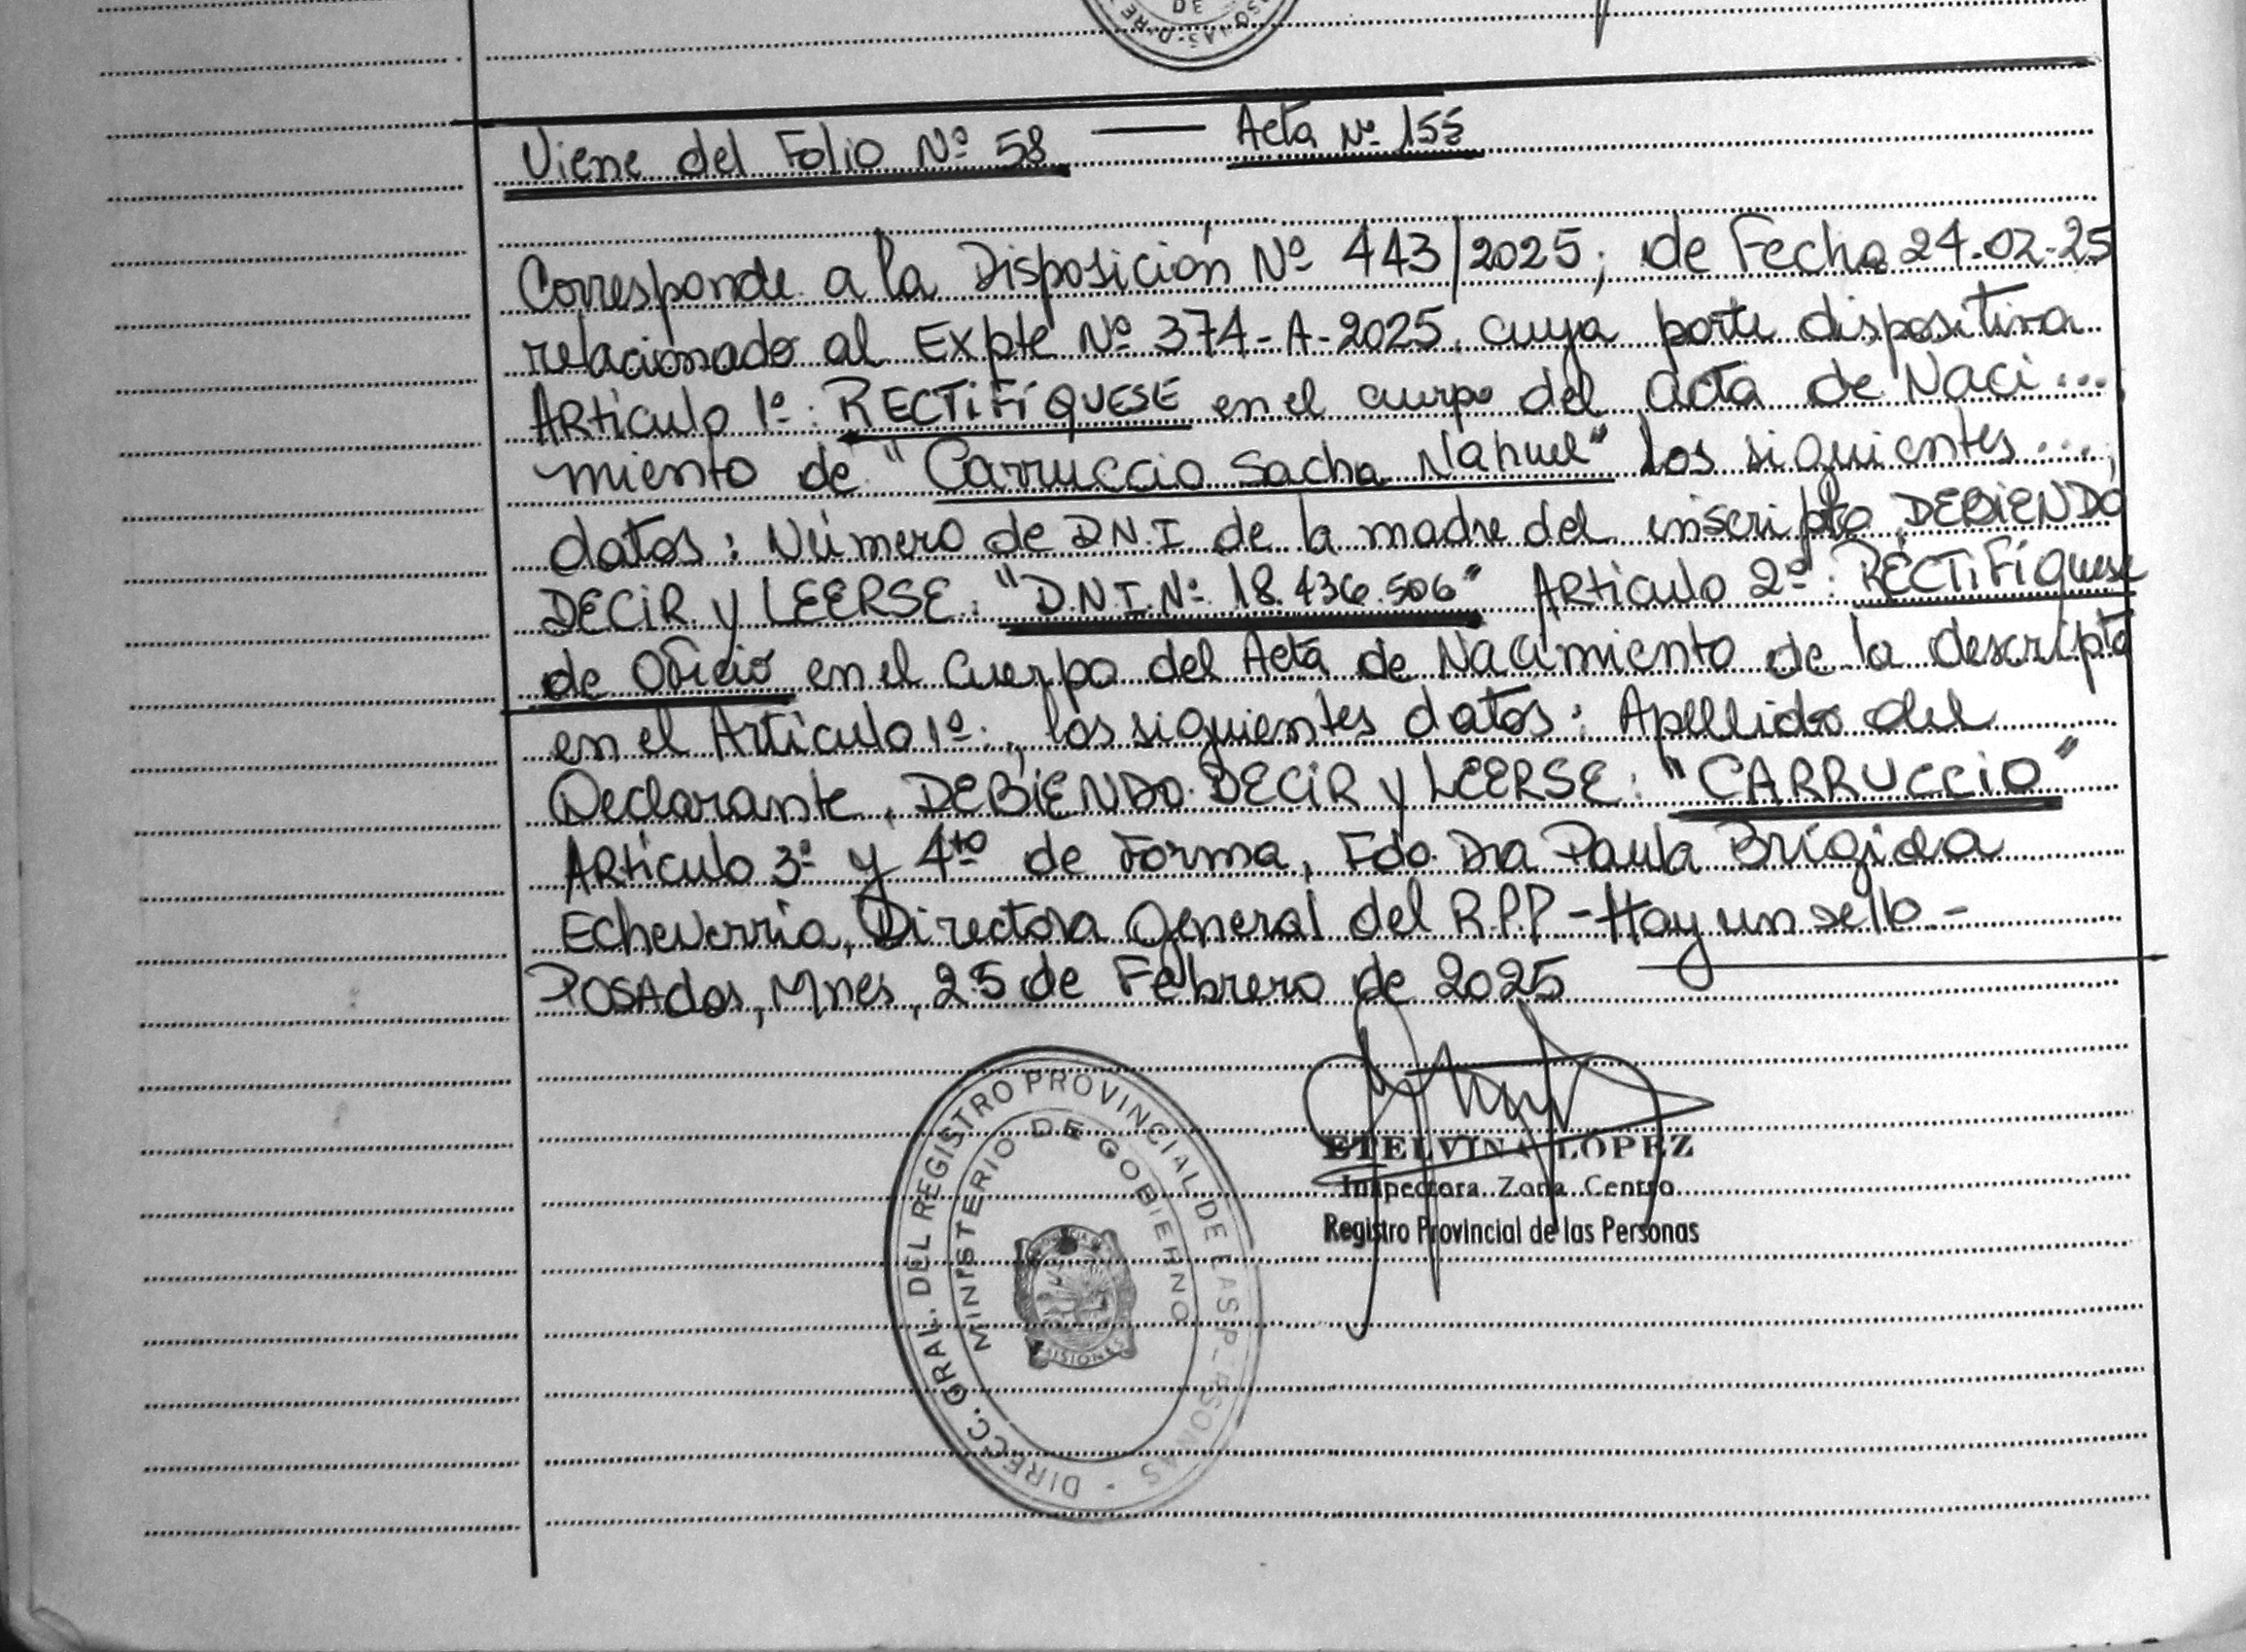 Viene del Folio Nº 58 — Acta Nº 155
Corresponde a la Disposición Nº 443/2025; de Fecha 24-02-25
relacionado al Expte Nº 374-A-2025. cuya parte dispositiva
Artículo 1º: RECTIFÍQUESE en el cuerpo del acta de Naci...
miento de "Carruccio Sacha Nahuel" los siguientes....
datos: Número de D.N.I de la madre del inscripto DEBIENDO
DECIR y LEERSE: "D.N.I.Nº 18.436.506" Artículo 2º: RECTIFíquese
de Oficio en el Cuerpo del Acta de Nacimiento de la descripta
en el Artículo 1º:, los siguientes datos: Apellido del
Declarante, DEBIENDO DECIR y LEERSE: "CARRUCCIO"
Artículo 3º y 4to de Forma, Fdo. Dra Paula Brígida
Echeverria, Directora General del R.P.P - Hay un sello -
POSAdas, Mnes, 25 de Febrero de 2025
DIRECC. GRAL. DEL REGISTRO PROVINCIAL DE LAS PERSONAS
MINISTERIO DE GOBIERNO
MISIONES
ETELVINA LÓPEZ
Inspectora Zona Centro
Registro Provincial de las Personas